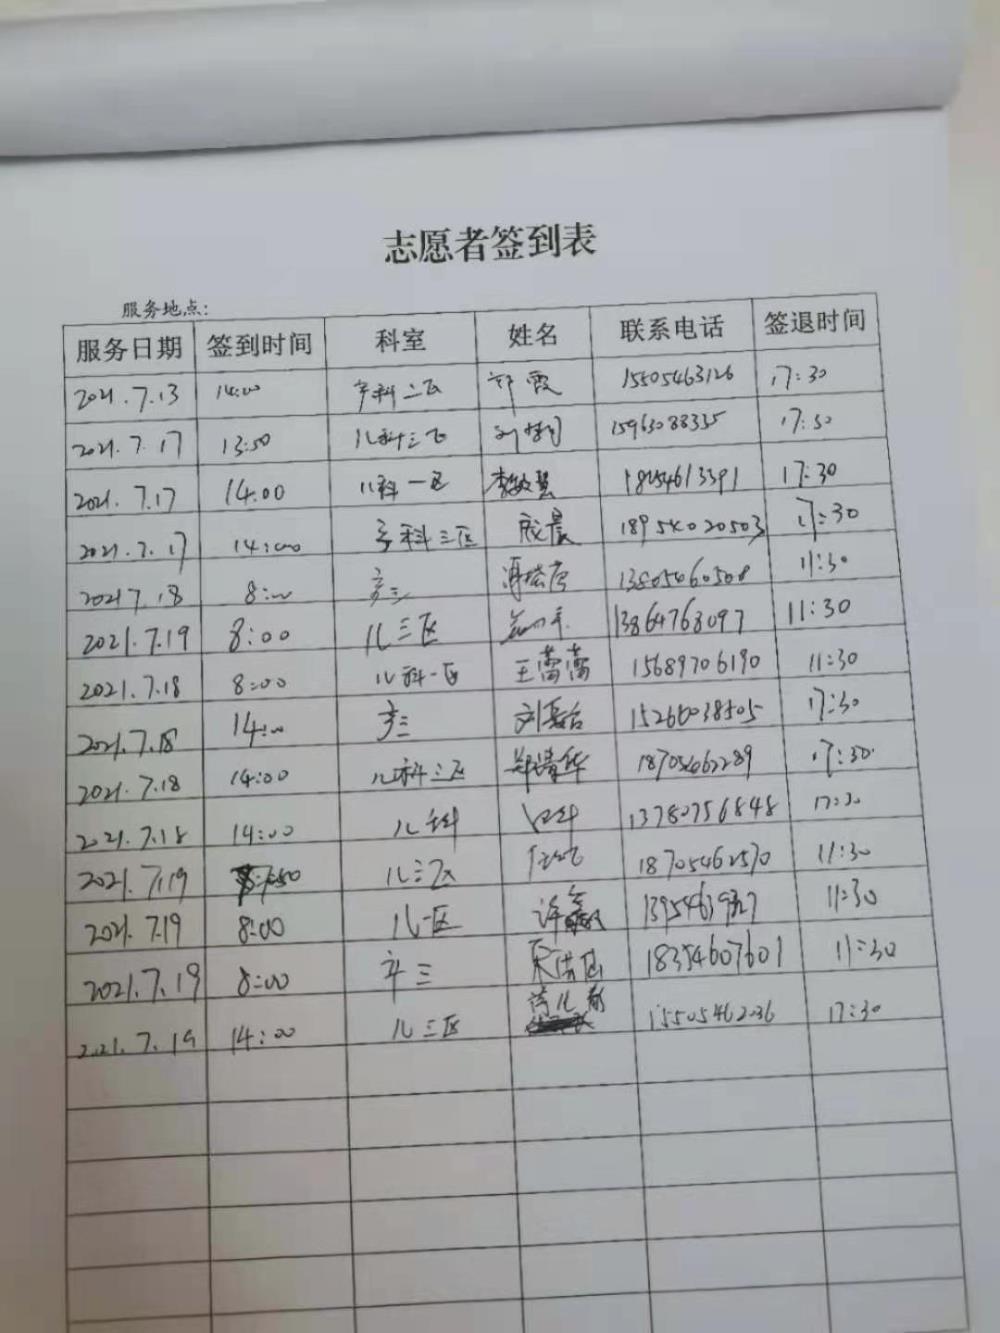 志愿者签到表
服务地点:
服务日期 签到时间 科室 姓名 联系电话 签退时间
2021.7.13 14:00 科二区 郑霞 15505463126 17:30
2021.7.17 13:50 儿科三区 刘 15963088335 17:30
2021.7.17 14:00 儿科一区 李敏慧 18254613391 17:30
2021.7.17 14:00 科三区 晨 18954020503 17:30
2021 7.18 8:00 三 13805460508 11:30
2021.7.19 8:00 儿三区 13864763097 11:30
2021.7.18 8:00 儿科一区 王蕾蕾 15689706190 11:30
2021.7.18 14:00 三 刘 15266038505 17:30
2021.7.18 14:00 儿科三区 郑清华 18705462289 17:30
2021.7.18 14:00 儿科 13780756848 17:30
2021.7.19 儿三区 18705462570 11:30
2021.7.19 8:00 儿一区 许鑫 11:30
2021.7.19 8:00 三 18354607601 11:30
2021.7.19 14:00 儿三区 15505462036 17:30